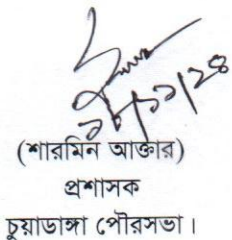 (শারমিন আক্তার)
প্রশাসক
চুয়াডাঙ্গা পৌরসভা।